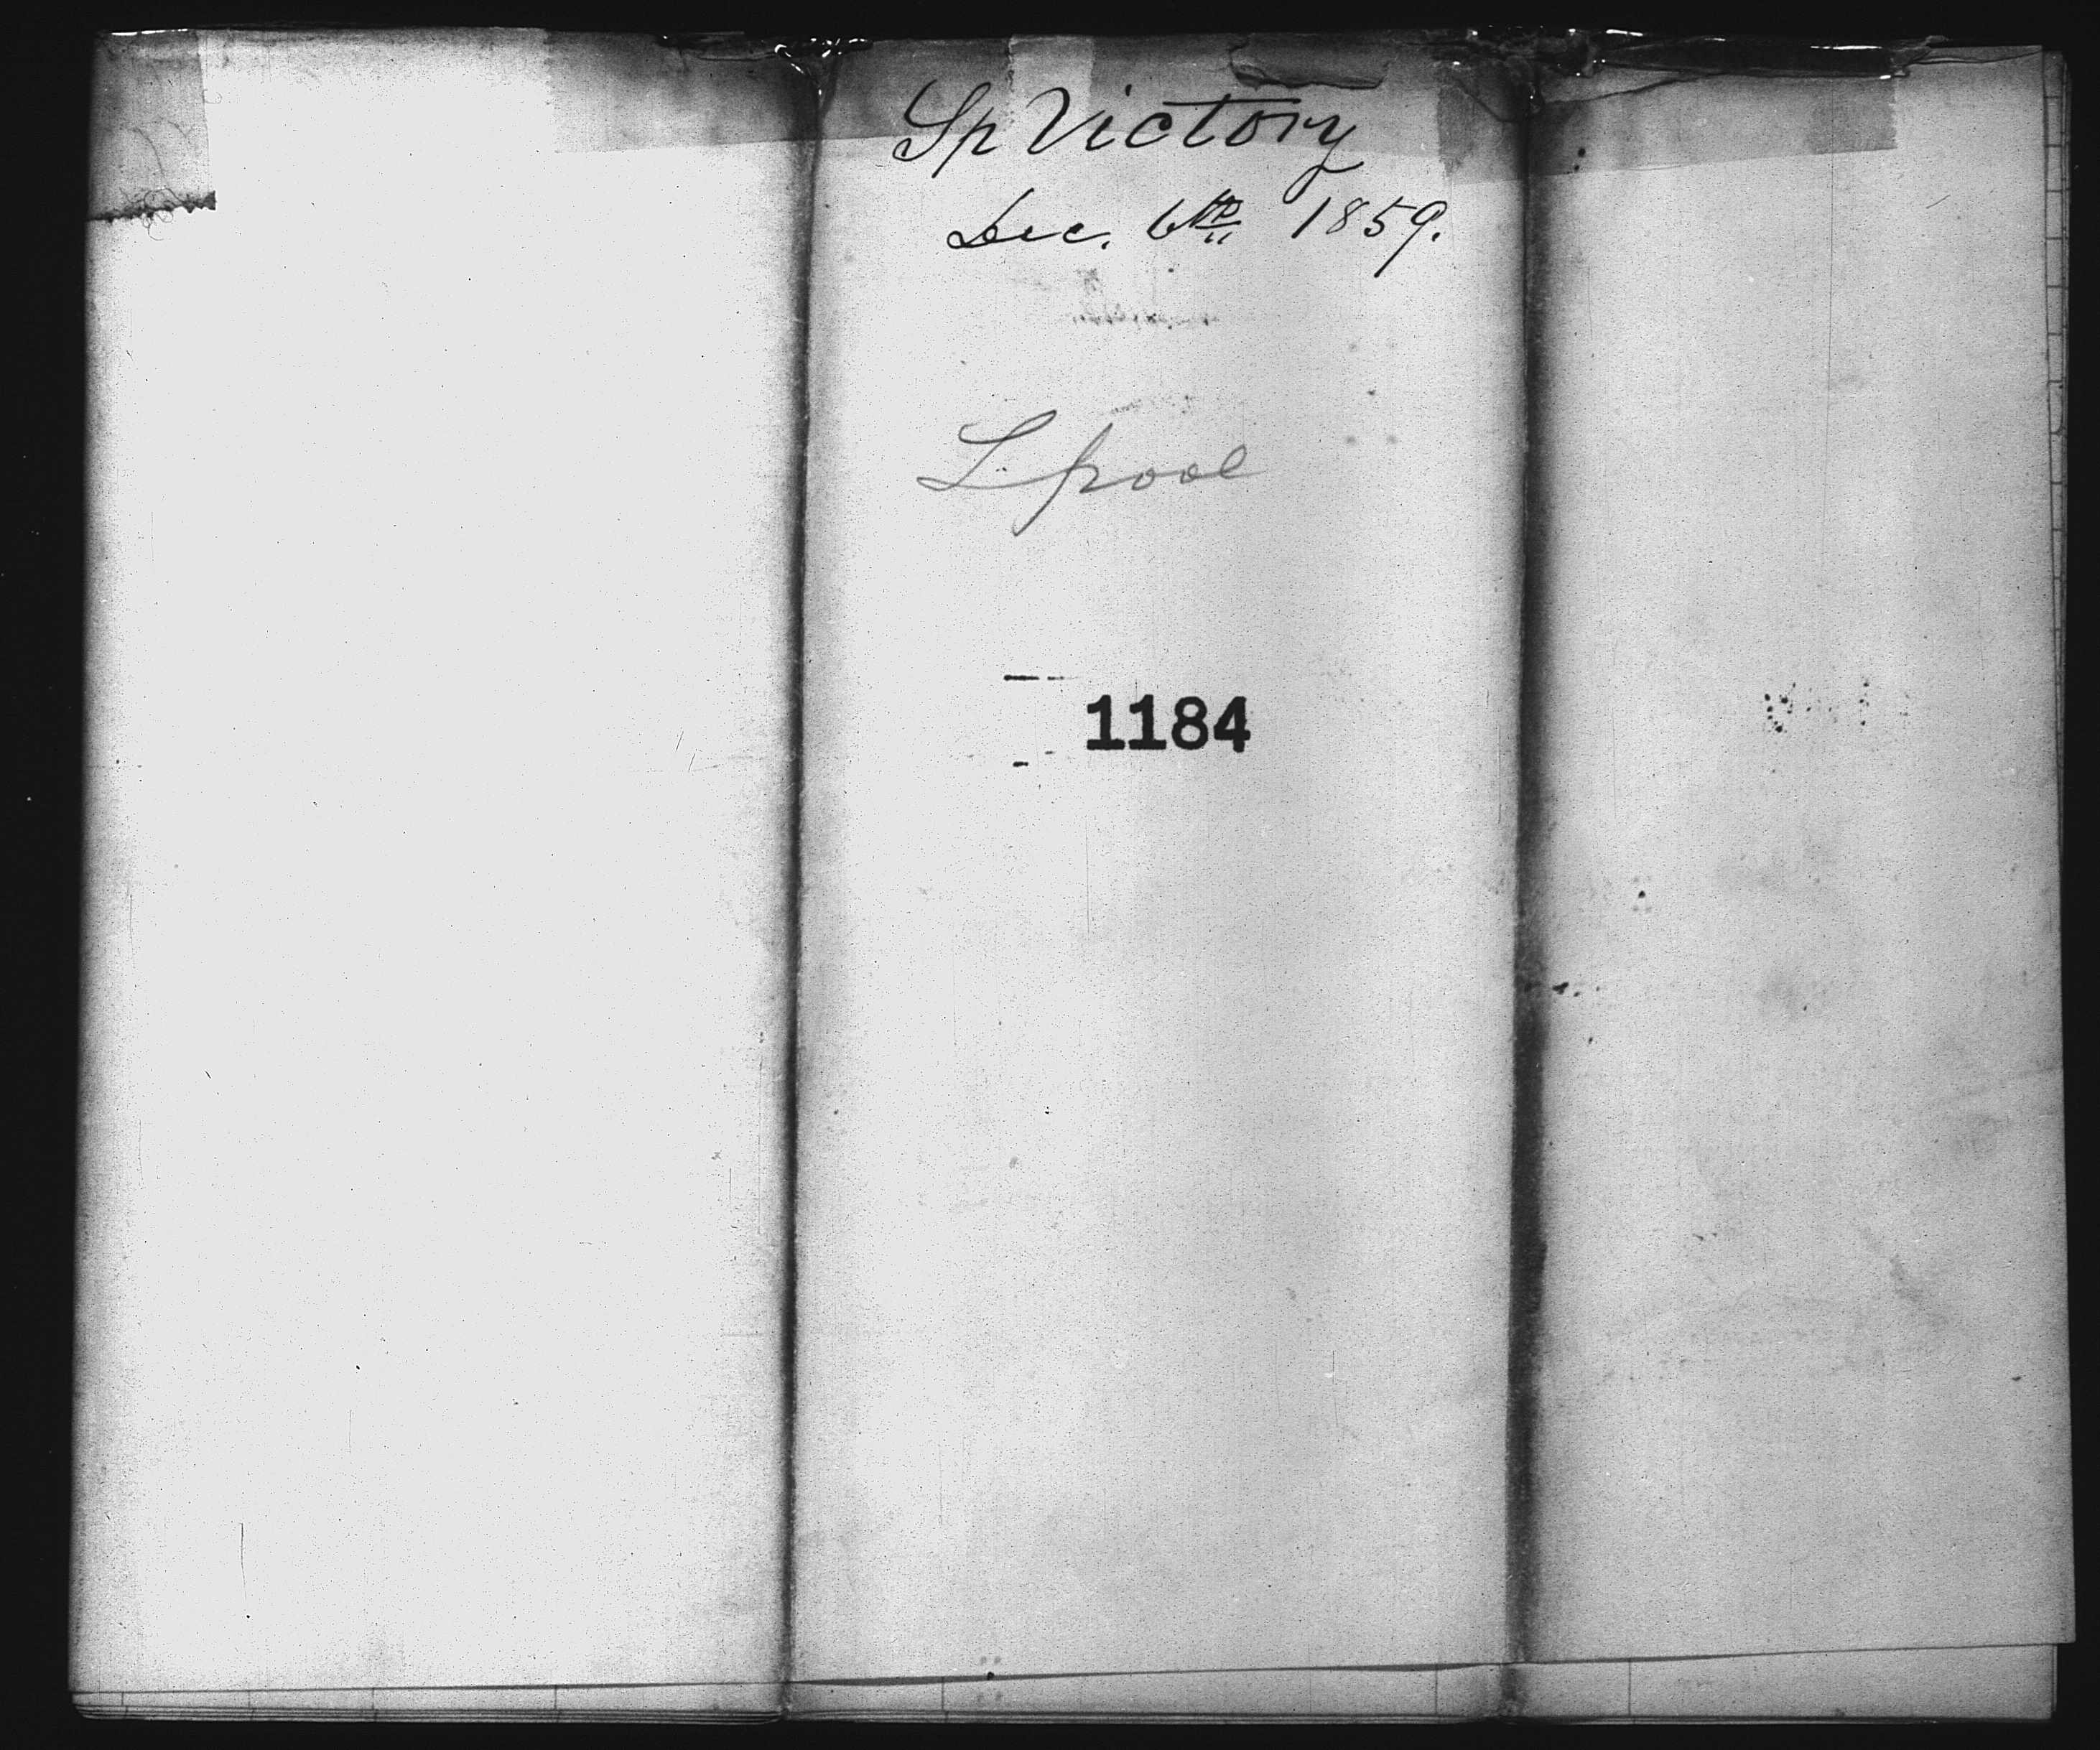 Sp Victory
Dec. 6th 1859.
L.pool
1184